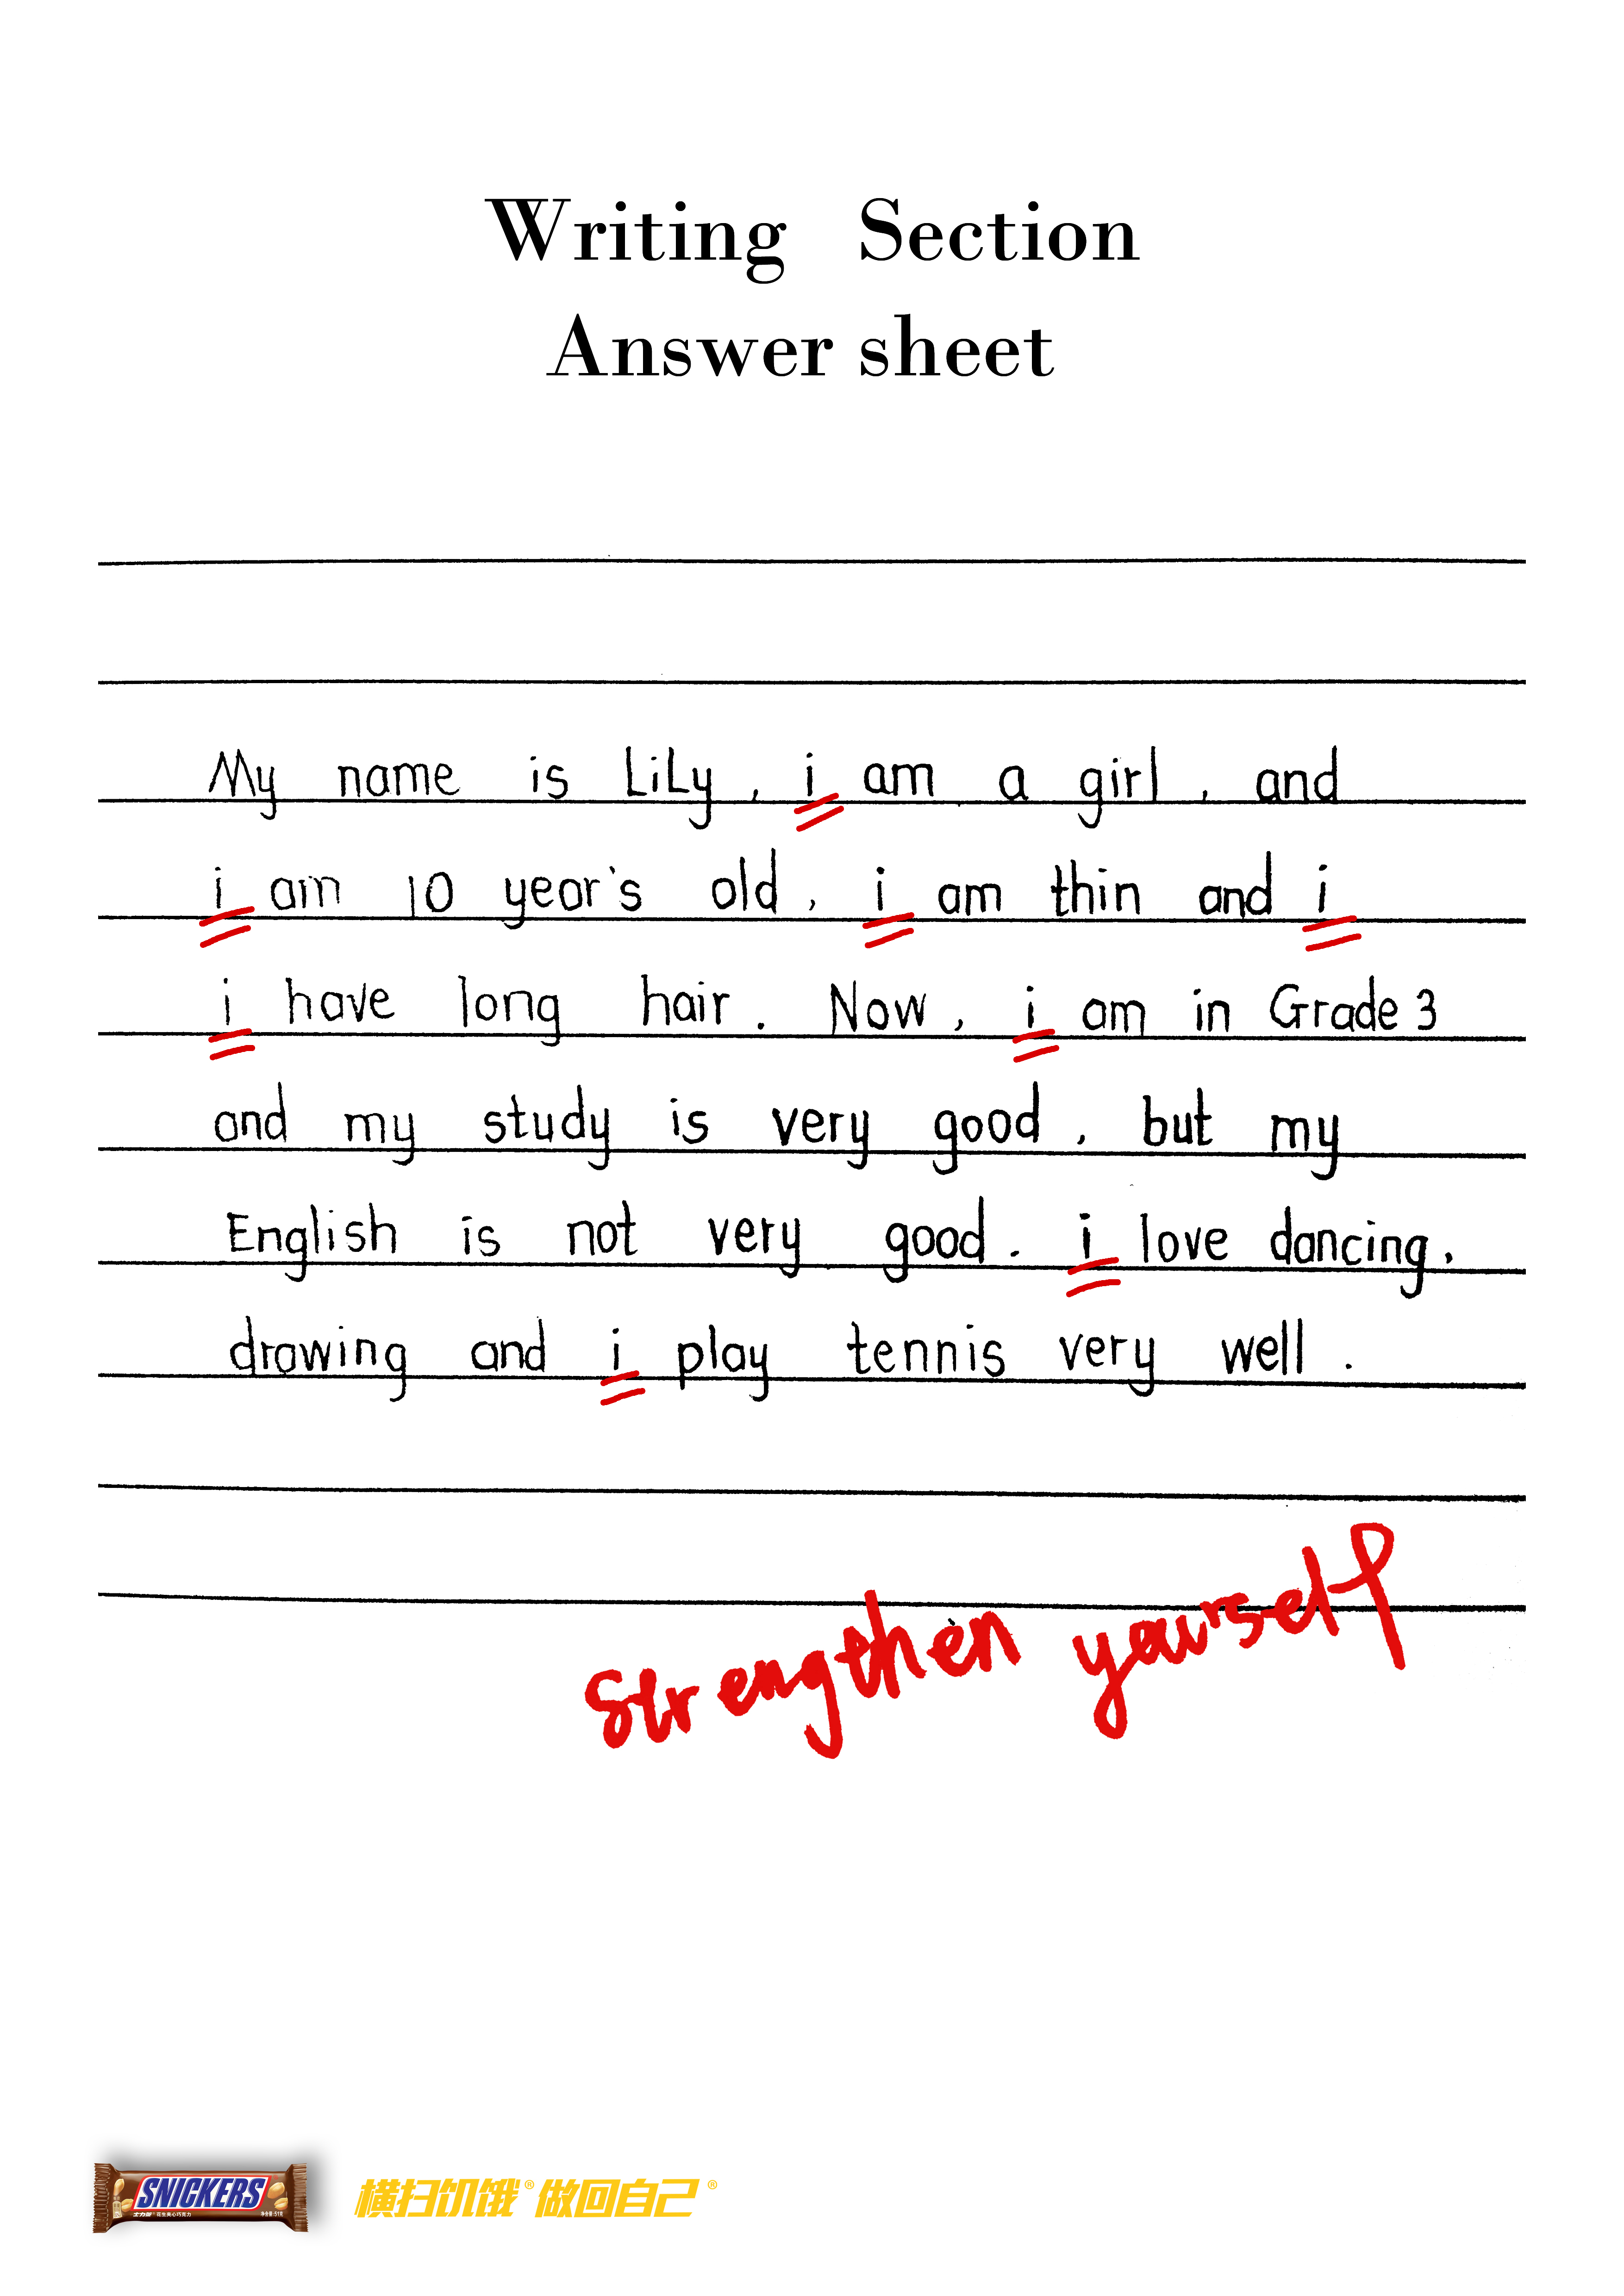 Writing Section
Answer sheet
My name is LiLy, i am a girl, and
i am 10 year's old, i am thin and i
i have long hair. Now, i am in Grade 3
and my study is very good, but my
English is not very good. i love dancing,
drawing and i play tennis very well.
strengthen yourself
SNICKERS
士力架® 花生夹心巧克力
净含量:51克
横扫饥饿® 做回自己®